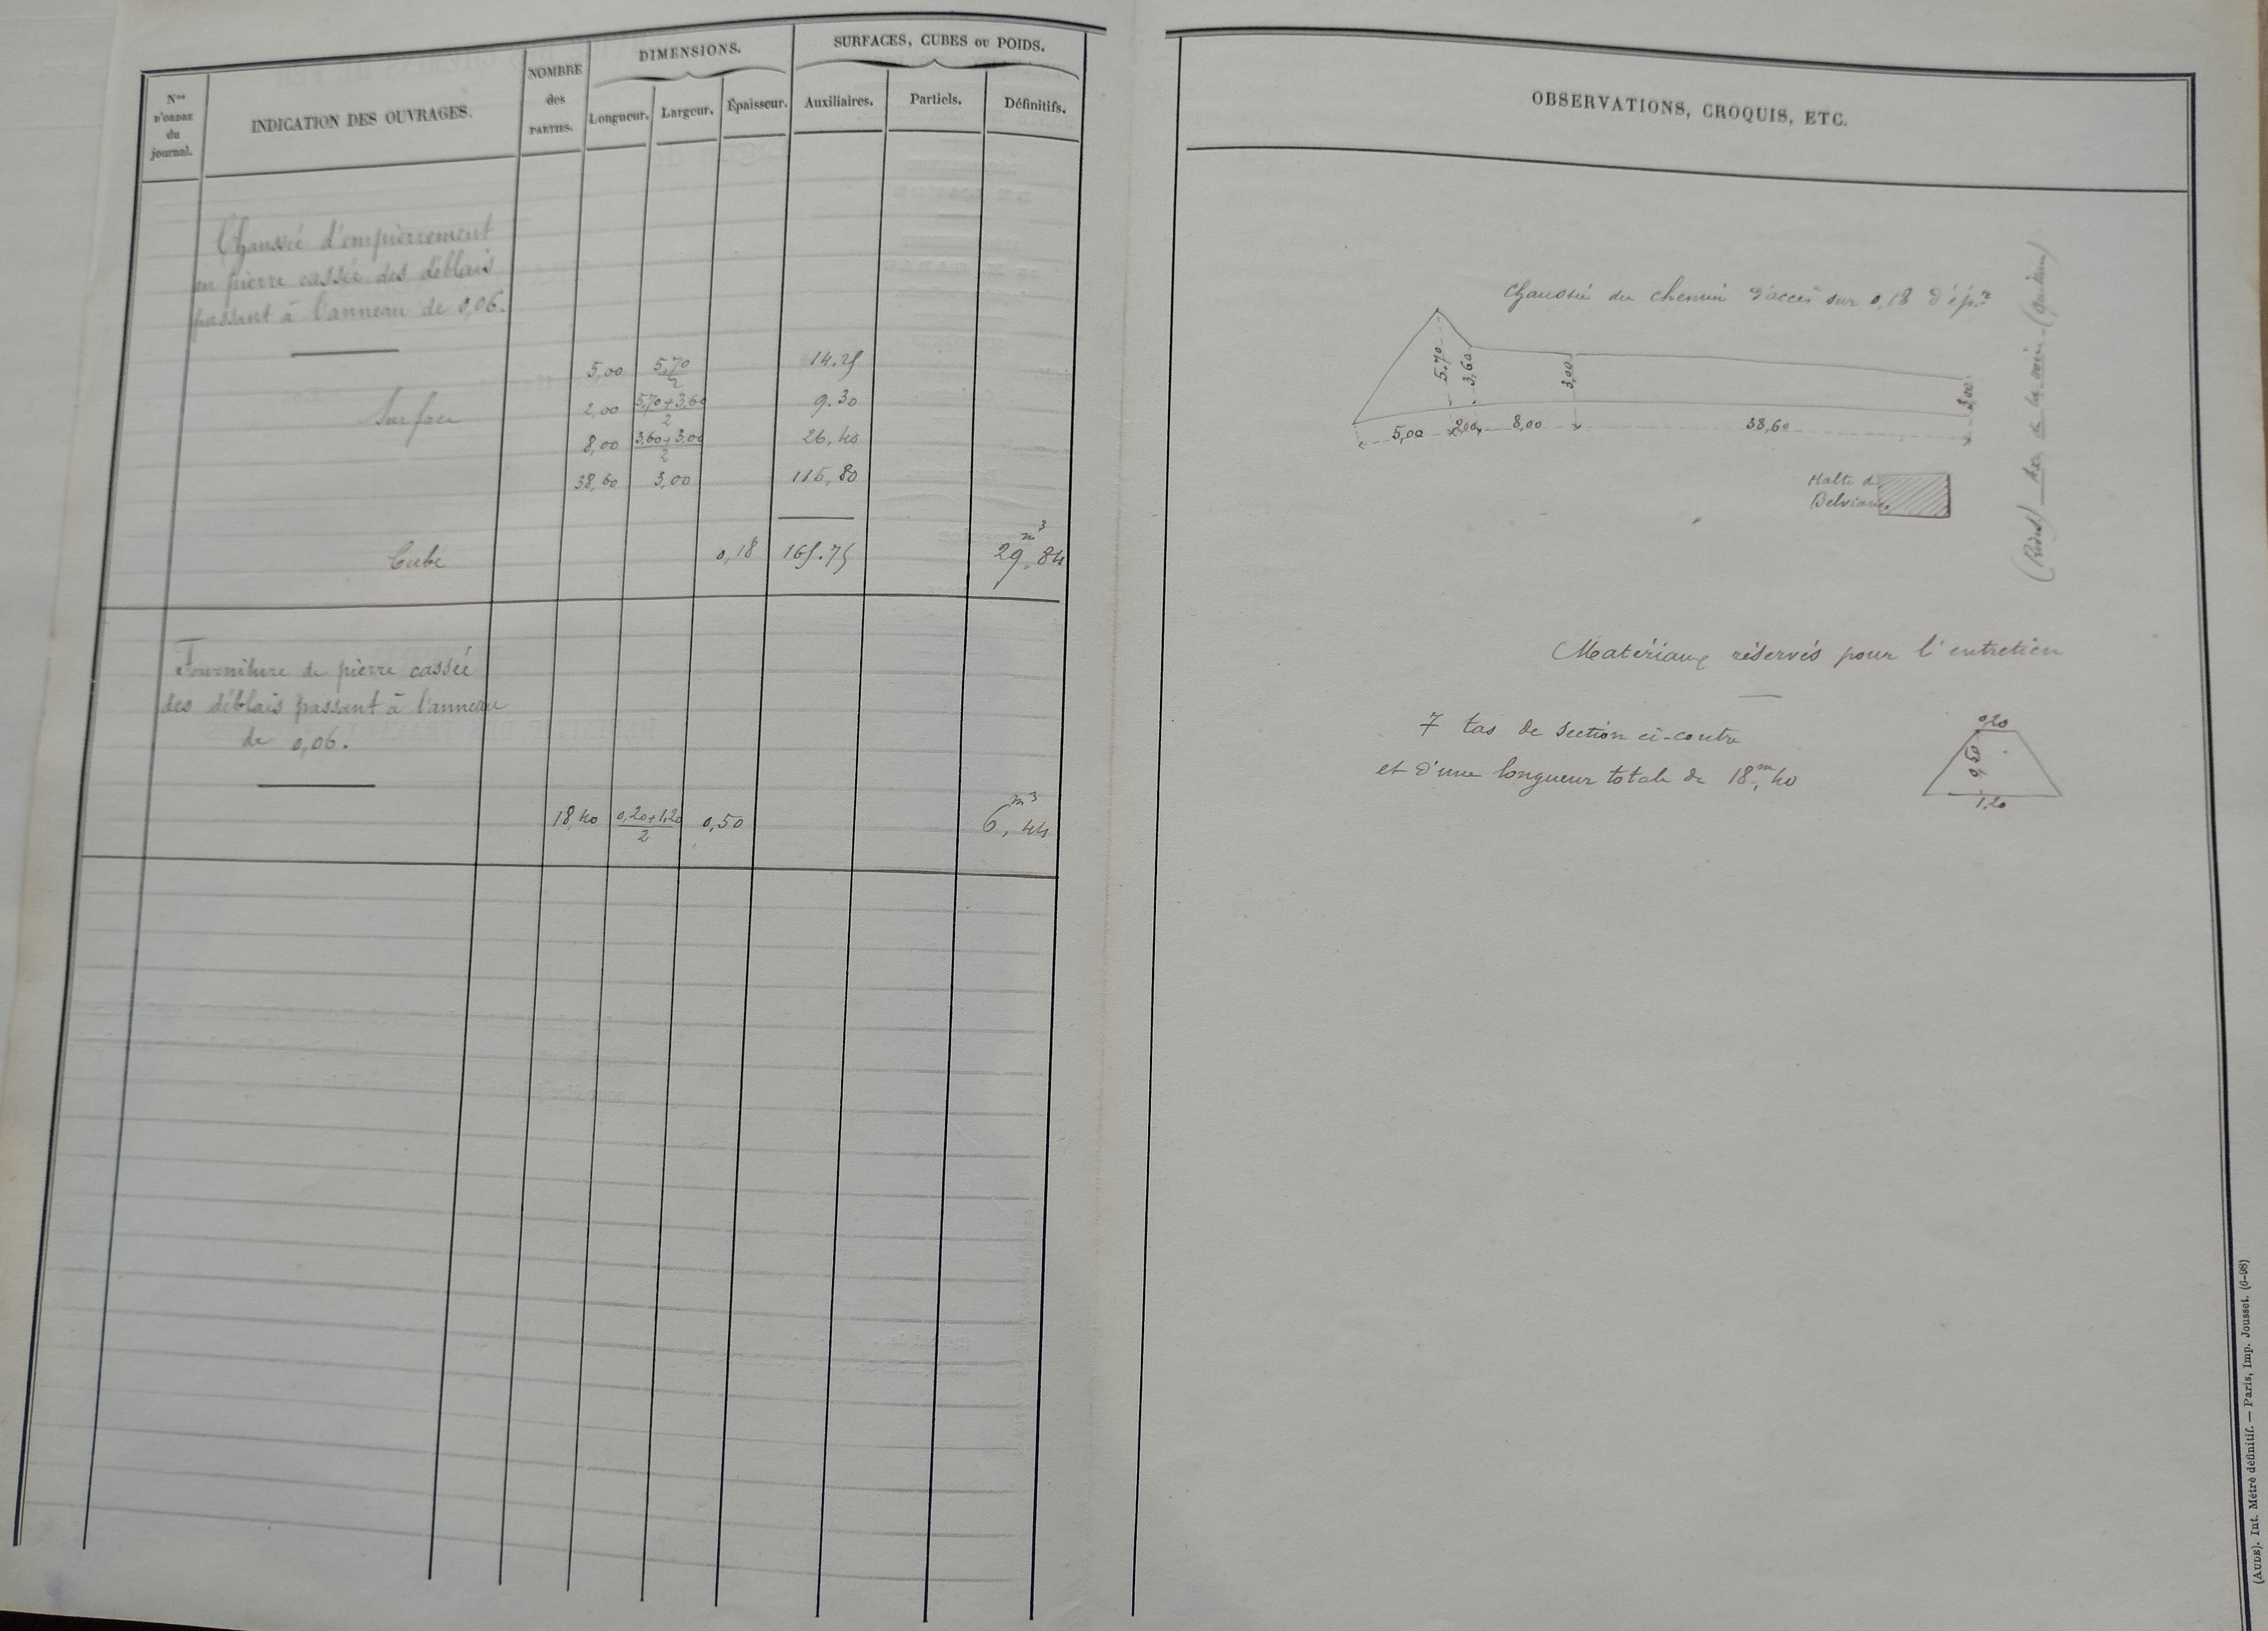 Nos D'ORDRE du journal.
INDICATION DES OUVRAGES.
NOMBRE des PARTIES.
DIMENSIONS.
Longueur. Largeur. Épaisseur.
SURFACES, CUBES ou POIDS.
Auxiliaires. Partiels. Définitifs.
Chaussée d'empierrement
en pierre cassée des déblais
passant à l'anneau de 0,06.
5,00 5,70/2 14.25
Surface 2,00 5,70+3,60/2 9.30
8,00 3,60+3,00/2 26,40
38,60 3,00 115,80
Cube 0,18 165.75 29,84 m3
Fourniture de pierre cassée
des déblais passant à l'anneau
de 0,06.
18,40 0,20+1,20/2 0,50 6,44 m3
OBSERVATIONS, CROQUIS, ETC.
Chaussée du chemin d'accès sur 0,18 d'ép.r
5.70
3,60
3,00
3,00
5,00 2,00 8,00 38,60
Halte de
Belvianes
(Rivus) Axe de la voie (Quillan)
Matériaux réservés pour l'entretien
7 tas de section ci-contre
et d'une longueur totale de 18m,40
0,20
0,50
1,20
(AUDE). Int. Métré définitif. — Paris, Imp. Jousset. (6-98)